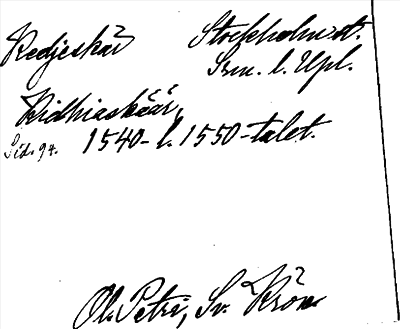 Redjeskär Stockholms st.
Srm. l. Upl.
Ridhiaskäär,
Sid. 94. 1540- l. 1550-talet.
Ol. Petri, Sv. Krön.